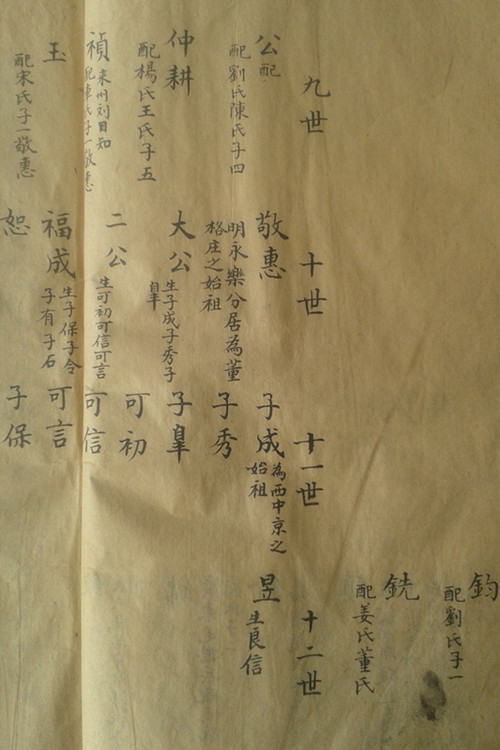 鈞
配劉氏子一
銑
配姜氏董氏
九世
公配
配劉氏陳氏子四
仲耕
配楊氏王氏子五
禎
萊州刘目知
玉
配宋氏子一敬惠
十世
敬惠
明永樂分居為董
格庄之始祖
大公
生子成子秀子
皐
二公
生可初可信可言
福成
生子保子令
子有子石
恕
十一世
子成
為西中京之
始祖
子秀
子皐
可初
可信
可言
子保
十二世
昱
生良信